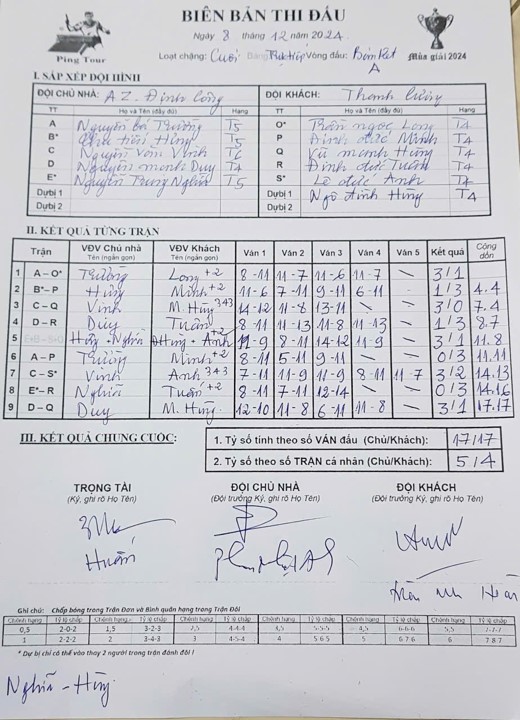 Ping Tour
BIÊN BẢN THI ĐẤU
Ngày 8 tháng 12 năm 2024
Loại chặng: Cuối Vòng đấu: Bán kết A
Mùa giải 2024
I. SẮP XẾP ĐỘI HÌNH
ĐỘI CHỦ NHÀ: AZ. Định Công ĐỘI KHÁCH:
TT Họ và Tên (đầy đủ) Hạng TT Họ và Tên (đầy đủ) Hạng
A Nguyễn Trường T5 O* Trần Ngọc Long T4
B* Hùng T5 P Đinh đức Minh T4
C Nguyễn Văn Vinh Q Vũ mạnh Hùng T4
D Nguyễn mạnh Duy T4 R Đinh đức Tuấn T4
E* Nguyễn Trung Nghĩa T5 S* Lê đức Anh T4
Dự bị 1 Dự bị 1 Ngô Hùng T4
Dự bị 2 Dự bị 2
II. KẾT QUẢ TỪNG TRẬN
Trận VĐV Chủ nhà Tên (ngắn gọn) VĐV Khách Tên (ngắn gọn) Ván 1 Ván 2 Ván 3 Ván 4 Ván 5 Kết quả Cộng dồn
1 A – O* Trường Long +2 8-11 11-7 11-6 11-7 — 3/1
2 B* – P Hùng Minh +2 11-6 7-11 9-11 6-11 - 1/3 4.4
3 C – Q Vinh M. Hùng 343 14-12 11-8 13-11 — 3/0 7.4
4 D – R Duy Tuấn 8-11 11-13 11-8 11-13 — 1/3 8.7
5 Hùng - Nghĩa Hùng - Anh +2 11-9 8-11 14-12 11-9 — 3/1 11.8
6 A – P Trường Minh +2 8-11 5-11 9-11 — — 0/3 11.11
7 C – S* Vinh Anh 343 7-11 11-9 11-9 8-11 11-7 3/2 14.13
8 E* – R Nghĩa Tuấn +2 8-11 7-11 12-14 — — 0/3 14.16
9 D – Q Duy M. Hùng 12-10 11-8 6-11 11-8 — 3/1 17.17
III. KẾT QUẢ CHUNG CUỘC:
1. Tỷ số tính theo số VÁN đấu (Chủ/Khách): 17/17
2. Tỷ số theo số TRẬN cá nhân (Chủ/Khách): 5/4
TRỌNG TÀI ĐỘI CHỦ NHÀ ĐỘI KHÁCH
(Ký, ghi rõ Họ Tên) (Đội trưởng Ký, ghi rõ Họ Tên) (Đội trưởng Ký, ghi rõ Họ Tên)
Huấn
Ghi chú: Chấp bóng trong Trận Đơn và Bình quân hạng trong Trận Đôi
Chênh hạng Tỷ lệ chấp Chênh hạng Tỷ lệ chấp Chênh hạng Tỷ lệ chấp Chênh hạng Tỷ lệ chấp Chênh hạng Tỷ lệ chấp Chênh hạng Tỷ lệ chấp
0,5 2-0-2 1,5 3-2-3 2,5 4-4-4 3,5 5-5-5 4,5 6-6-6 5,5 7-7-7
1 2-2-2 2 3-4-3 3 4-5-4 4 5 6 5 5 6 7 6 6 7 8 7
* Dự bị chỉ có thể vào thay 2 người trong trận đánh đôi !
Nghĩa - Hùng